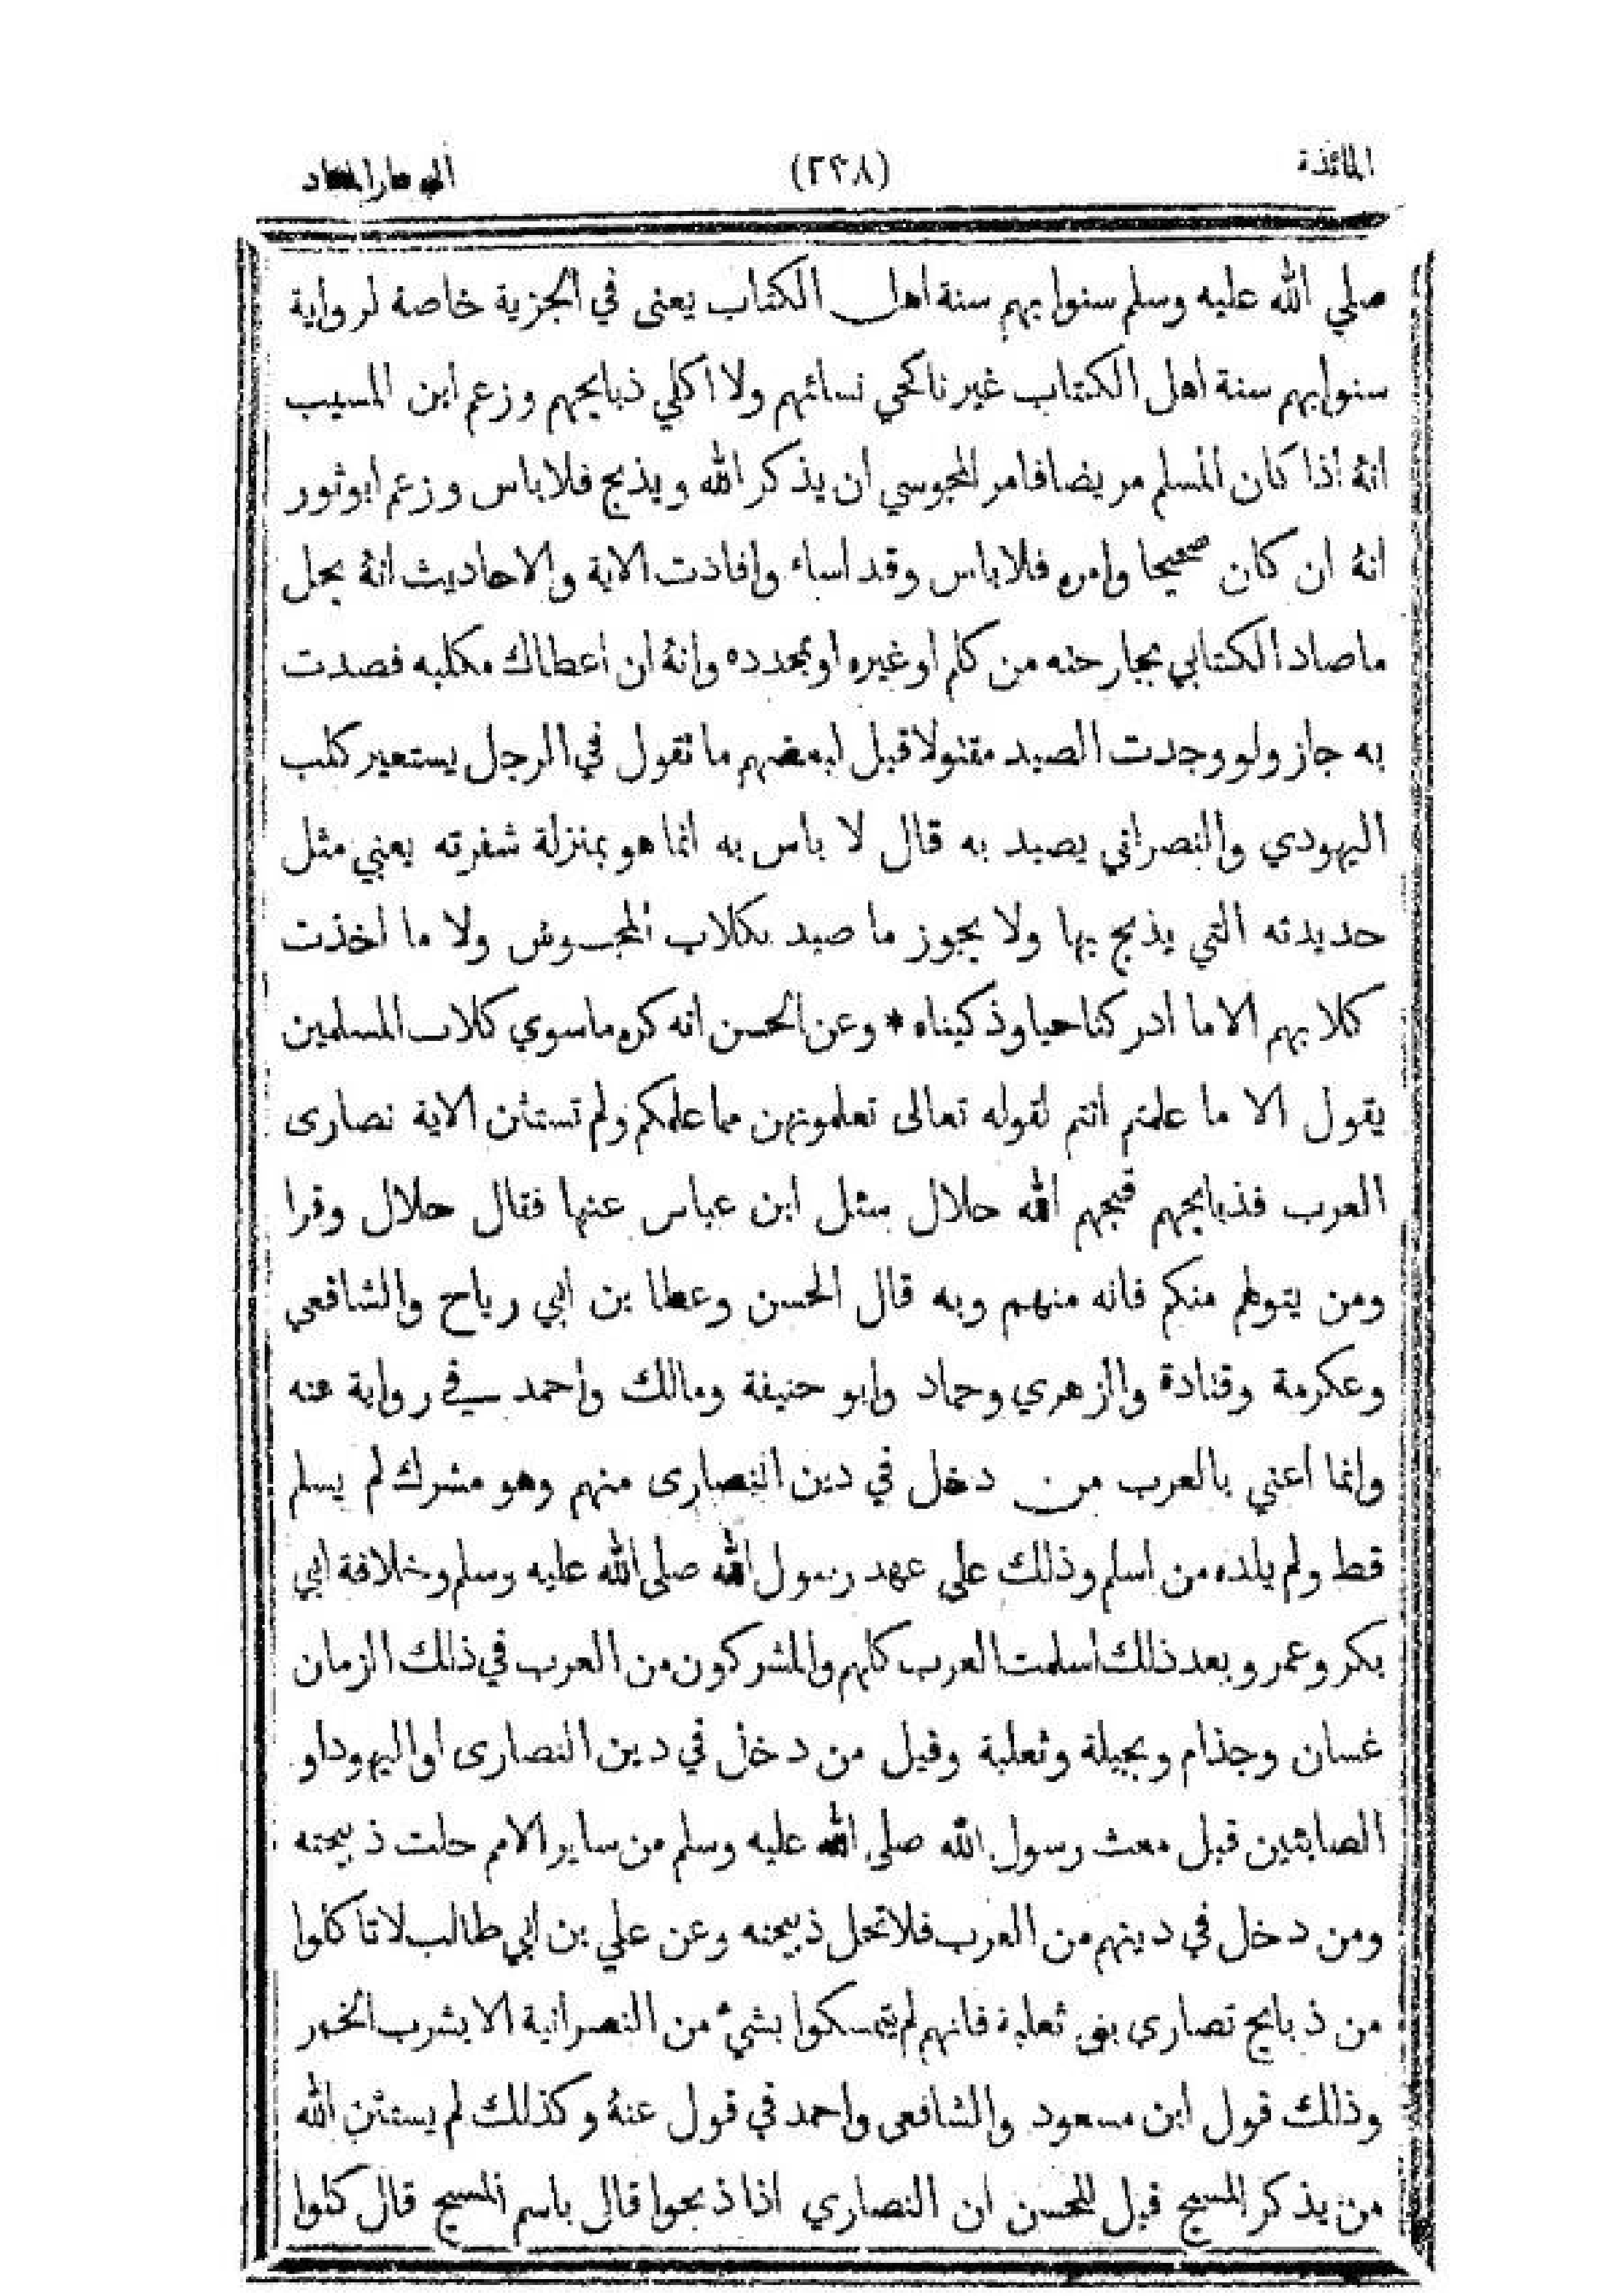 المائدة (٢٣٨)
صلي الله عليه وسلم سنوا بهم سنة اهل الكتاب يعنى في الجزية خاصة لرواية
سنوا بهم سنة اهل الكتاب غير ناكحي نسائهم ولا اكلي ذبايحهم وزعم ابن المسيب
انهُ اذا كان المسلم مريضا فامر المجوسي ان يذكر الله ويذبح فلا باس وزعم ابوثور
انهُ ان كان صحيحا وامره فلا باس وقد اساء وافاذت الاية والاحاديث انهُ يحل
ما صاد الكتابي بجارحته من كلم او غيره او بمحدده وانهُ ان اعطاك مكلبه فصدت
به جاز ولو وجدت الصيد مقتولا قيل لبعضهم ما تقول في الرجل يستعير كلب
اليهودي والنصراني يصيد به قال لا باس به انما هو بمنزلة شفرته يعني مثل
حديدته التي يذبح بها ولا يجوز ما صيد بكلاب المجوس ولا ما اخذت
كلابهم الا ما ادركنا حيا وذكيناه * وعن الحسن انه كره ما سوي كلاب المسلمين
يقول الا ما علمتم انتم لقوله تعالى تعلمونهن مما علمكم ولم تستثن الاية نصارى
العرب فذبايحهم الله حلال سئل ابن عباس عنها فقال حلال وقرا
ومن يتولهم منكم فانه منهم وبه قال الحسن وعطا بن ابي رياح والشافعي
وعكرمة وقتادة والزهري وحماد وابو حنيفة ومالك واحمد في رواية عنه
وانما اعني بالعرب من دخل في دين النصارى منهم وهو مشرك لم يسلم
قط ولم يلده من اسلم وذلك علي عهد رسول الله صلى الله عليه وسلم وخلافة ابي
بكر وعمر وبعد ذلك اسلمت العرب كلهم والمشركون من العرب في ذلك الزمان
غسان وجذام وبجيلة وثعلبة وقيل من دخل في دين النصارى او اليهود او
الصابئين قبل مبعث رسول الله صلى الله عليه وسلم من ساير الامم حلت ذبيحته
ومن دخل في دينهم من العرب فلا تحل ذبيحته وعن علي بن ابي طالب لا تاكلوا
من ذبايح نصارى بني ثعلبة فانهم لم يتمسكوا بشيء من النصرانية الا بشرب الخمر
وذلك قول ابن مسعود والشافعى واحمد في قول عنهُ وكذلك لم يستثن الله
من يذكر المسيح قيل للحسن ان النصاري اذا ذبحوا قالى باسم المسيح قال كلوا